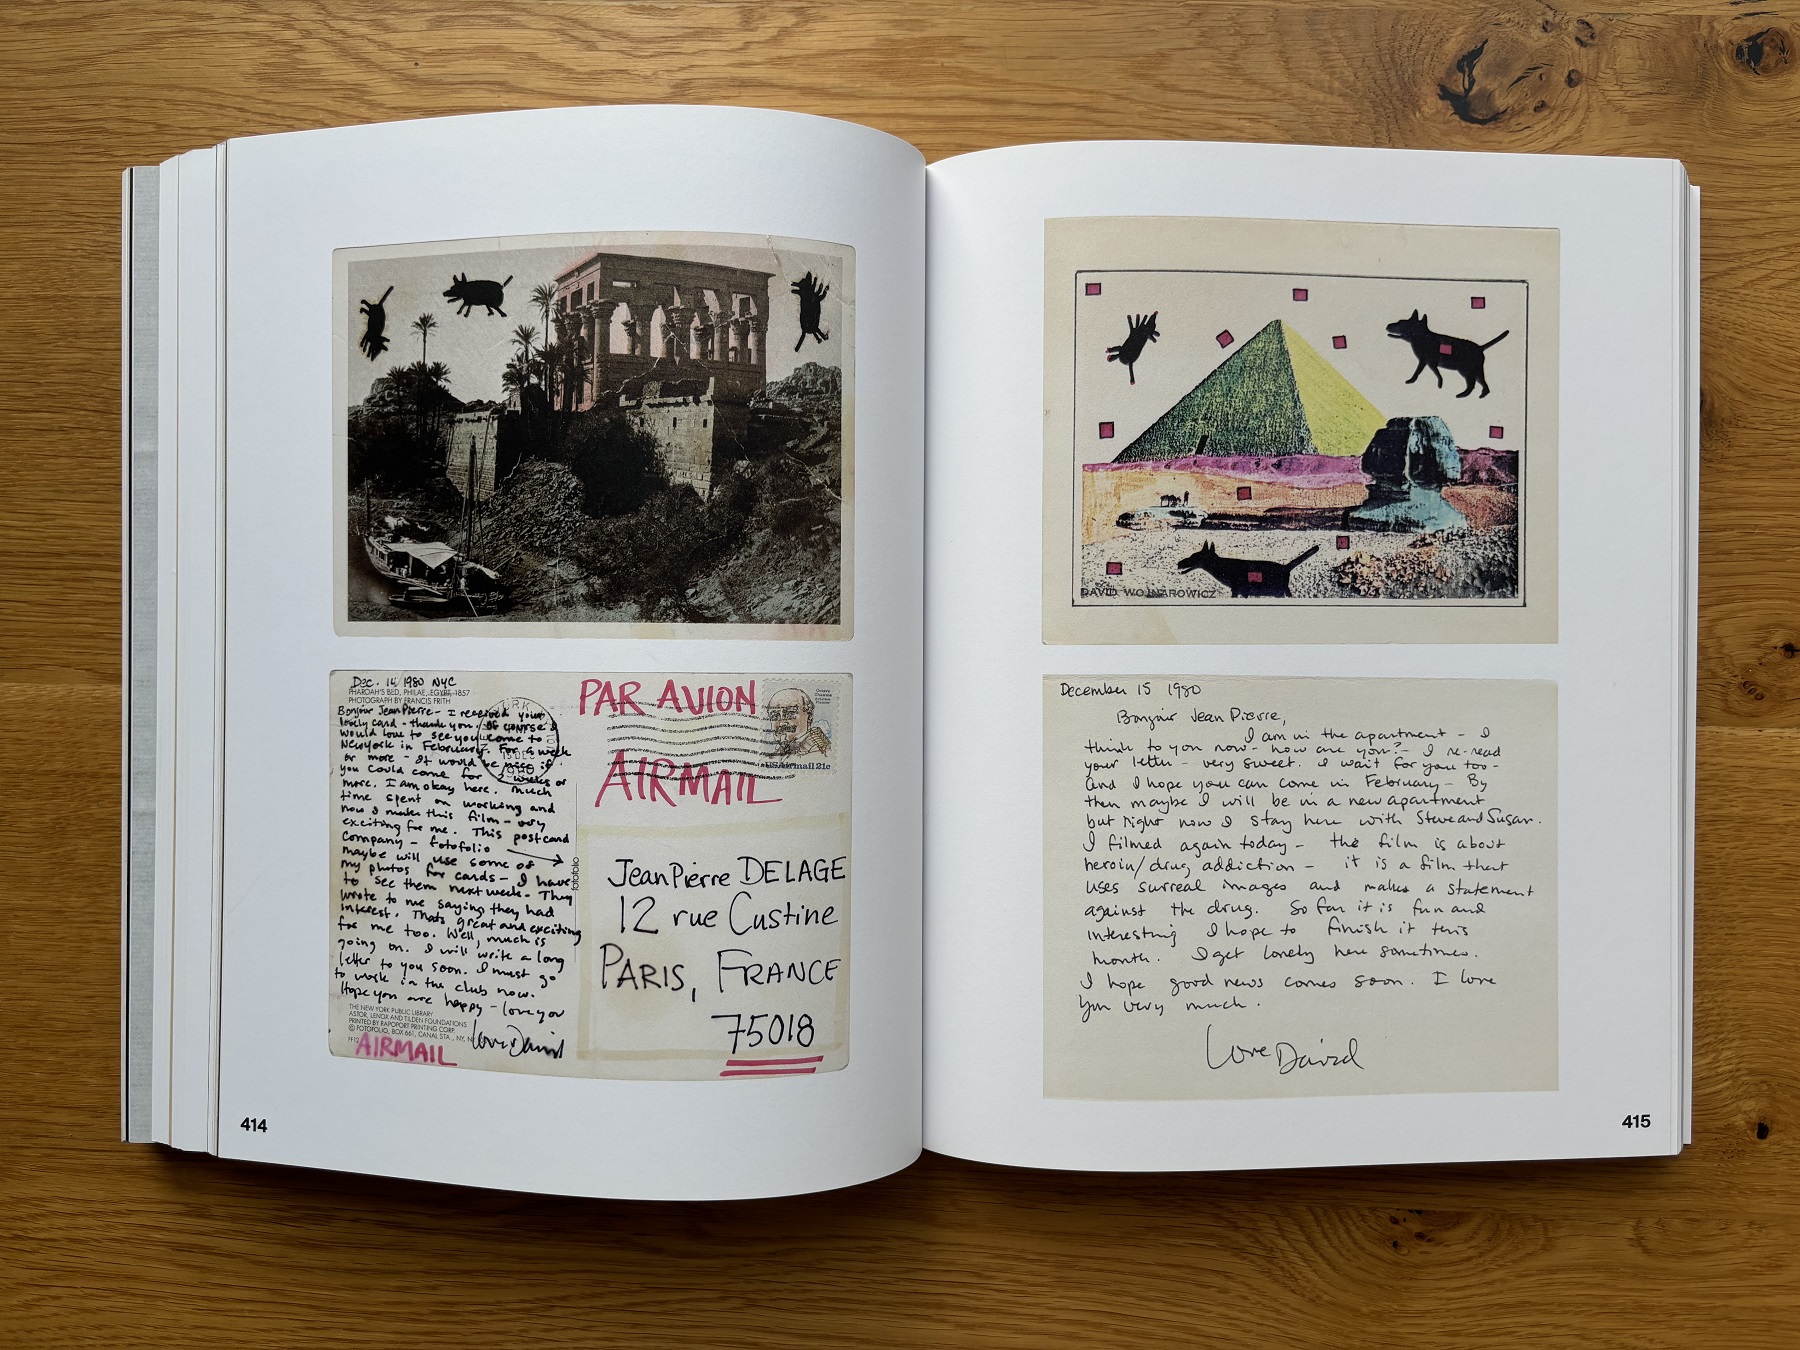 Dec. 14 1980 NYC
PHAROAH'S BED, PHILAE, EGYPT, 1857
PHOTOGRAPH BY FRANCIS FRITH
Bonjour Jean Pierre - I received your
lovely card - thank you. Of course I
would love to see you come to
New York in February. For a week
or more - It would be nice if
you could come for 2 weeks or
more. I am okay here. Much
time spent on working and
now I make this film - very
exciting for me. This postcard
company - fotofolio →
maybe will use some of
my photos for cards - I have
to see them next week. They
wrote to me saying they had
interest. Thats great and exciting
for me too. Well, much is
going on. I will write a long
letter to you soon. I must go
to work in the club now.
Hope you are happy - love you
Love David
THE NEW YORK PUBLIC LIBRARY
ASTOR, LENOX AND TILDEN FOUNDATIONS
PRINTED BY RAPOPORT PRINTING CORP.
© FOTOFOLIO, BOX 661, CANAL STA., NY, N
FF12
AIRMAIL
fotofolio
PAR AVION
AIRMAIL
1980
USAirmail 21c
Jean Pierre DELAGE
12 rue Custine
PARIS, FRANCE
75018
414
DAVID WOJNAROWICZ
December 15 1980
Bonjour Jean Pierre,
I am in the apartment - I
think to you now - how are you? - I re-read
your letter - very sweet. I wait for you too -
and I hope you can come in February - By
then maybe I will be in a new apartment
but right now I stay here with Steve and Susan.
I filmed again today - the film is about
heroin/drug addiction - it is a film that
uses surreal images and makes a statement
against the drug. So far it is fun and
interesting I hope to finish it this
month. I get lonely here sometimes.
I hope good news comes soon. I love
you very much.
Love David
415